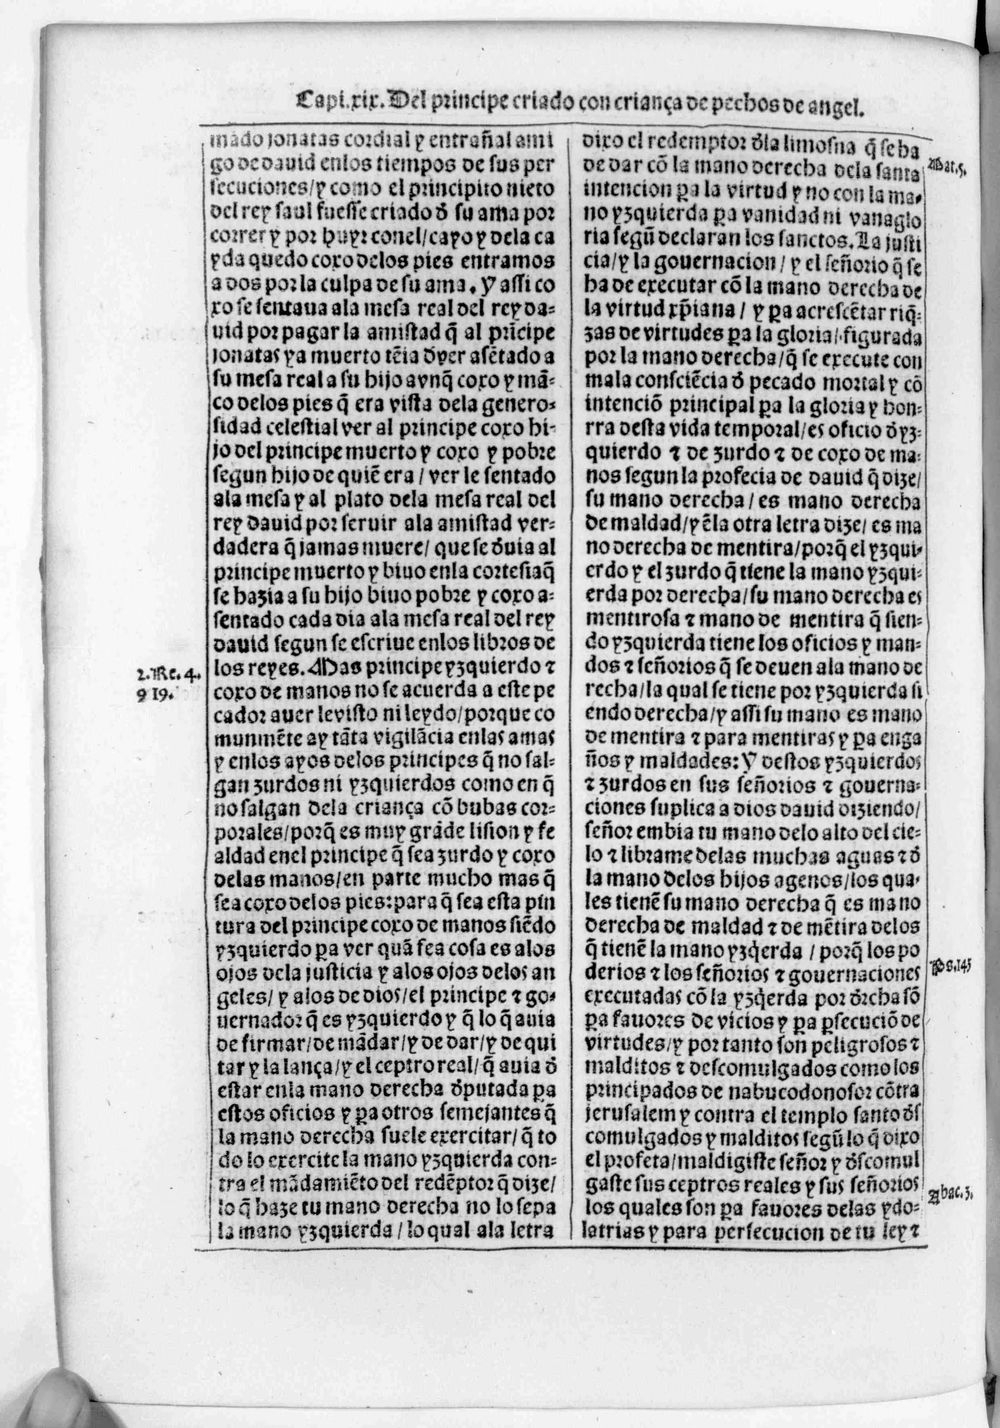 Capi.xix. Del principe criado con criança de pechos de angel.
mado jonatas cordial y entrañal ami
go de dauid enlos tiempos de sus per
secuciones/y como el principito nieto
del rey saul fuesse criado d̄ su ama por
correr y por huyr conel/cayo y dela ca
yda quedo coxo delos pies entramos
a dos por la culpa de su ama. Y assi co
xo se sentaua ala mesa real del rey da-
uid por pagar la amistad q̃ al prīcipe
jonatas ya muerto tēia d̄uer asētado a
su mesa real a su hijo avnq̃ coxo y mā-
co delos pies q̃ era vista dela genero-
sidad celestial ver al principe coxo hi-
jo del principe muerto y coxo y pobre
segun hijo de quiē era/ ver le sentado
ala mesa y al plato dela mesa real del
rey dauid por seruir ala amistad ver-
dadera q̃ jamas muere/ que se d̄uia al
principe muerto y biuo enla cortesia q̃
se hazia a su hijo biuo pobre y coxo a-
sentado cada dia ala mesa real del rey
dauid segun se escriue enlos libros de
los reyes. Mas principe yzquierdo ⁊
coxo de manos no se acuerda a este pe
cador auer le visto ni leydo/porque co
munmēte ay tāta vigilācia enlas amas
y enlos ayos delos principes q̃ no sal-
gan zurdos ni yzquierdos como en q̃
no salgan dela criança cō bubas cor-
porales/porq̃ es muy grāde lision y fe
aldad enel principe q̃ sea zurdo y coxo
delas manos/en parte mucho mas q̃
sea coxo delos pies:para q̃ sea esta pin
tura del principe coxo de manos siēdo
yzquierdo pa ver quā fea cosa es alos
ojos dela justicia y alos ojos delos an
geles/ y alos de dios/el principe ⁊ go-
uernador q̃ es yzquierdo y q̃ lo q̃ auia
de firmar/de mādar/y de dar/y de qui
tar y la lança/y el ceptro real/ q̃ auia d̄
estar enla mano derecha d̄putada pa
estos oficios y pa otros semejantes q̃
la mano derecha suele exercitar/ q̃ to
do lo exercite la mano yzquierda con-
tra el mādamiēto del redēptor q̃ dize/
lo q̃ haze tu mano derecha no lo sepa
la mano yzquierda/ lo qual ala letra
2. Re. 4.
9 19.
dixo el redemptor d̄la limosna q̃ se ha
de dar cō la mano derecha dela santa
intencion pa la virtud y no con la ma-
no yzquierda pa vanidad ni vanaglo
ria segū declaran los sanctos. La justi
cia/y la gouernacion/ y el señorio q̃ se
ha de executar cō la mano derecha de
la virtud xp̄iana/ y pa acrescētar riq̃-
zas de virtudes pa la gloria/ figurada
por la mano derecha/q̃ se execute con
mala consciēcia d̄ pecado mortal y cō
intenciō principal pa la gloria y hon-
rra desta vida temporal/es oficio d̄ yz-
quierdo ⁊ de zurdo ⁊ de coxo de ma-
nos segun la profecia de dauid q̃ dize/
su mano derecha/ es mano derecha
de maldad/y ēla otra letra dize/ es ma
no derecha de mentira/porq̃ el yzqui-
erdo y el zurdo q̃ tiene la mano yzqui-
erda por derecha/su mano derecha es
mentirosa ⁊ mano de mentira q̃ sien-
do yzquierda tiene los oficios y man-
dos ⁊ señorios q̃ se deuen ala mano de
recha/la qual se tiene por yzquierda si
endo derecha/y assi su mano es mano
de mentira ⁊ para mentiras y pa enga
ños y maldades: Y destos yzquierdos
⁊ zurdos en sus señorios ⁊ gouerna-
ciones suplica a dios dauid diziendo/
señor embia tu mano delo alto del cie-
lo ⁊ librame delas muchas aguas ⁊ d̄
la mano delos hijos agenos/los qua-
les tienē su mano derecha q̃ es mano
derecha de maldad ⁊ de mētira delos
q̃ tienē la mano yzq̃erda / porq̃ los po
derios ⁊ los señorios ⁊ gouernaciones
executadas cō la yzq̃erda por d̄recha sō
pa fauores de vicios y pa psecuciō de
virtudes/y por tanto son peligrosos ⁊
malditos ⁊ descomulgados como los
principados de nabucodonosor cōtra
jerusalem y contra el templo santo d̄s
comulgados y malditos segū lo q̃ dixo
el profeta/maldigiste señor y d̄scomul
gaste sus ceptros reales y sus señorios
los quales son pa fauores delas ydo-
latrias y para persecucion de tu ley ⁊
Mat. 5.
Ps. 143
Abac. 3.